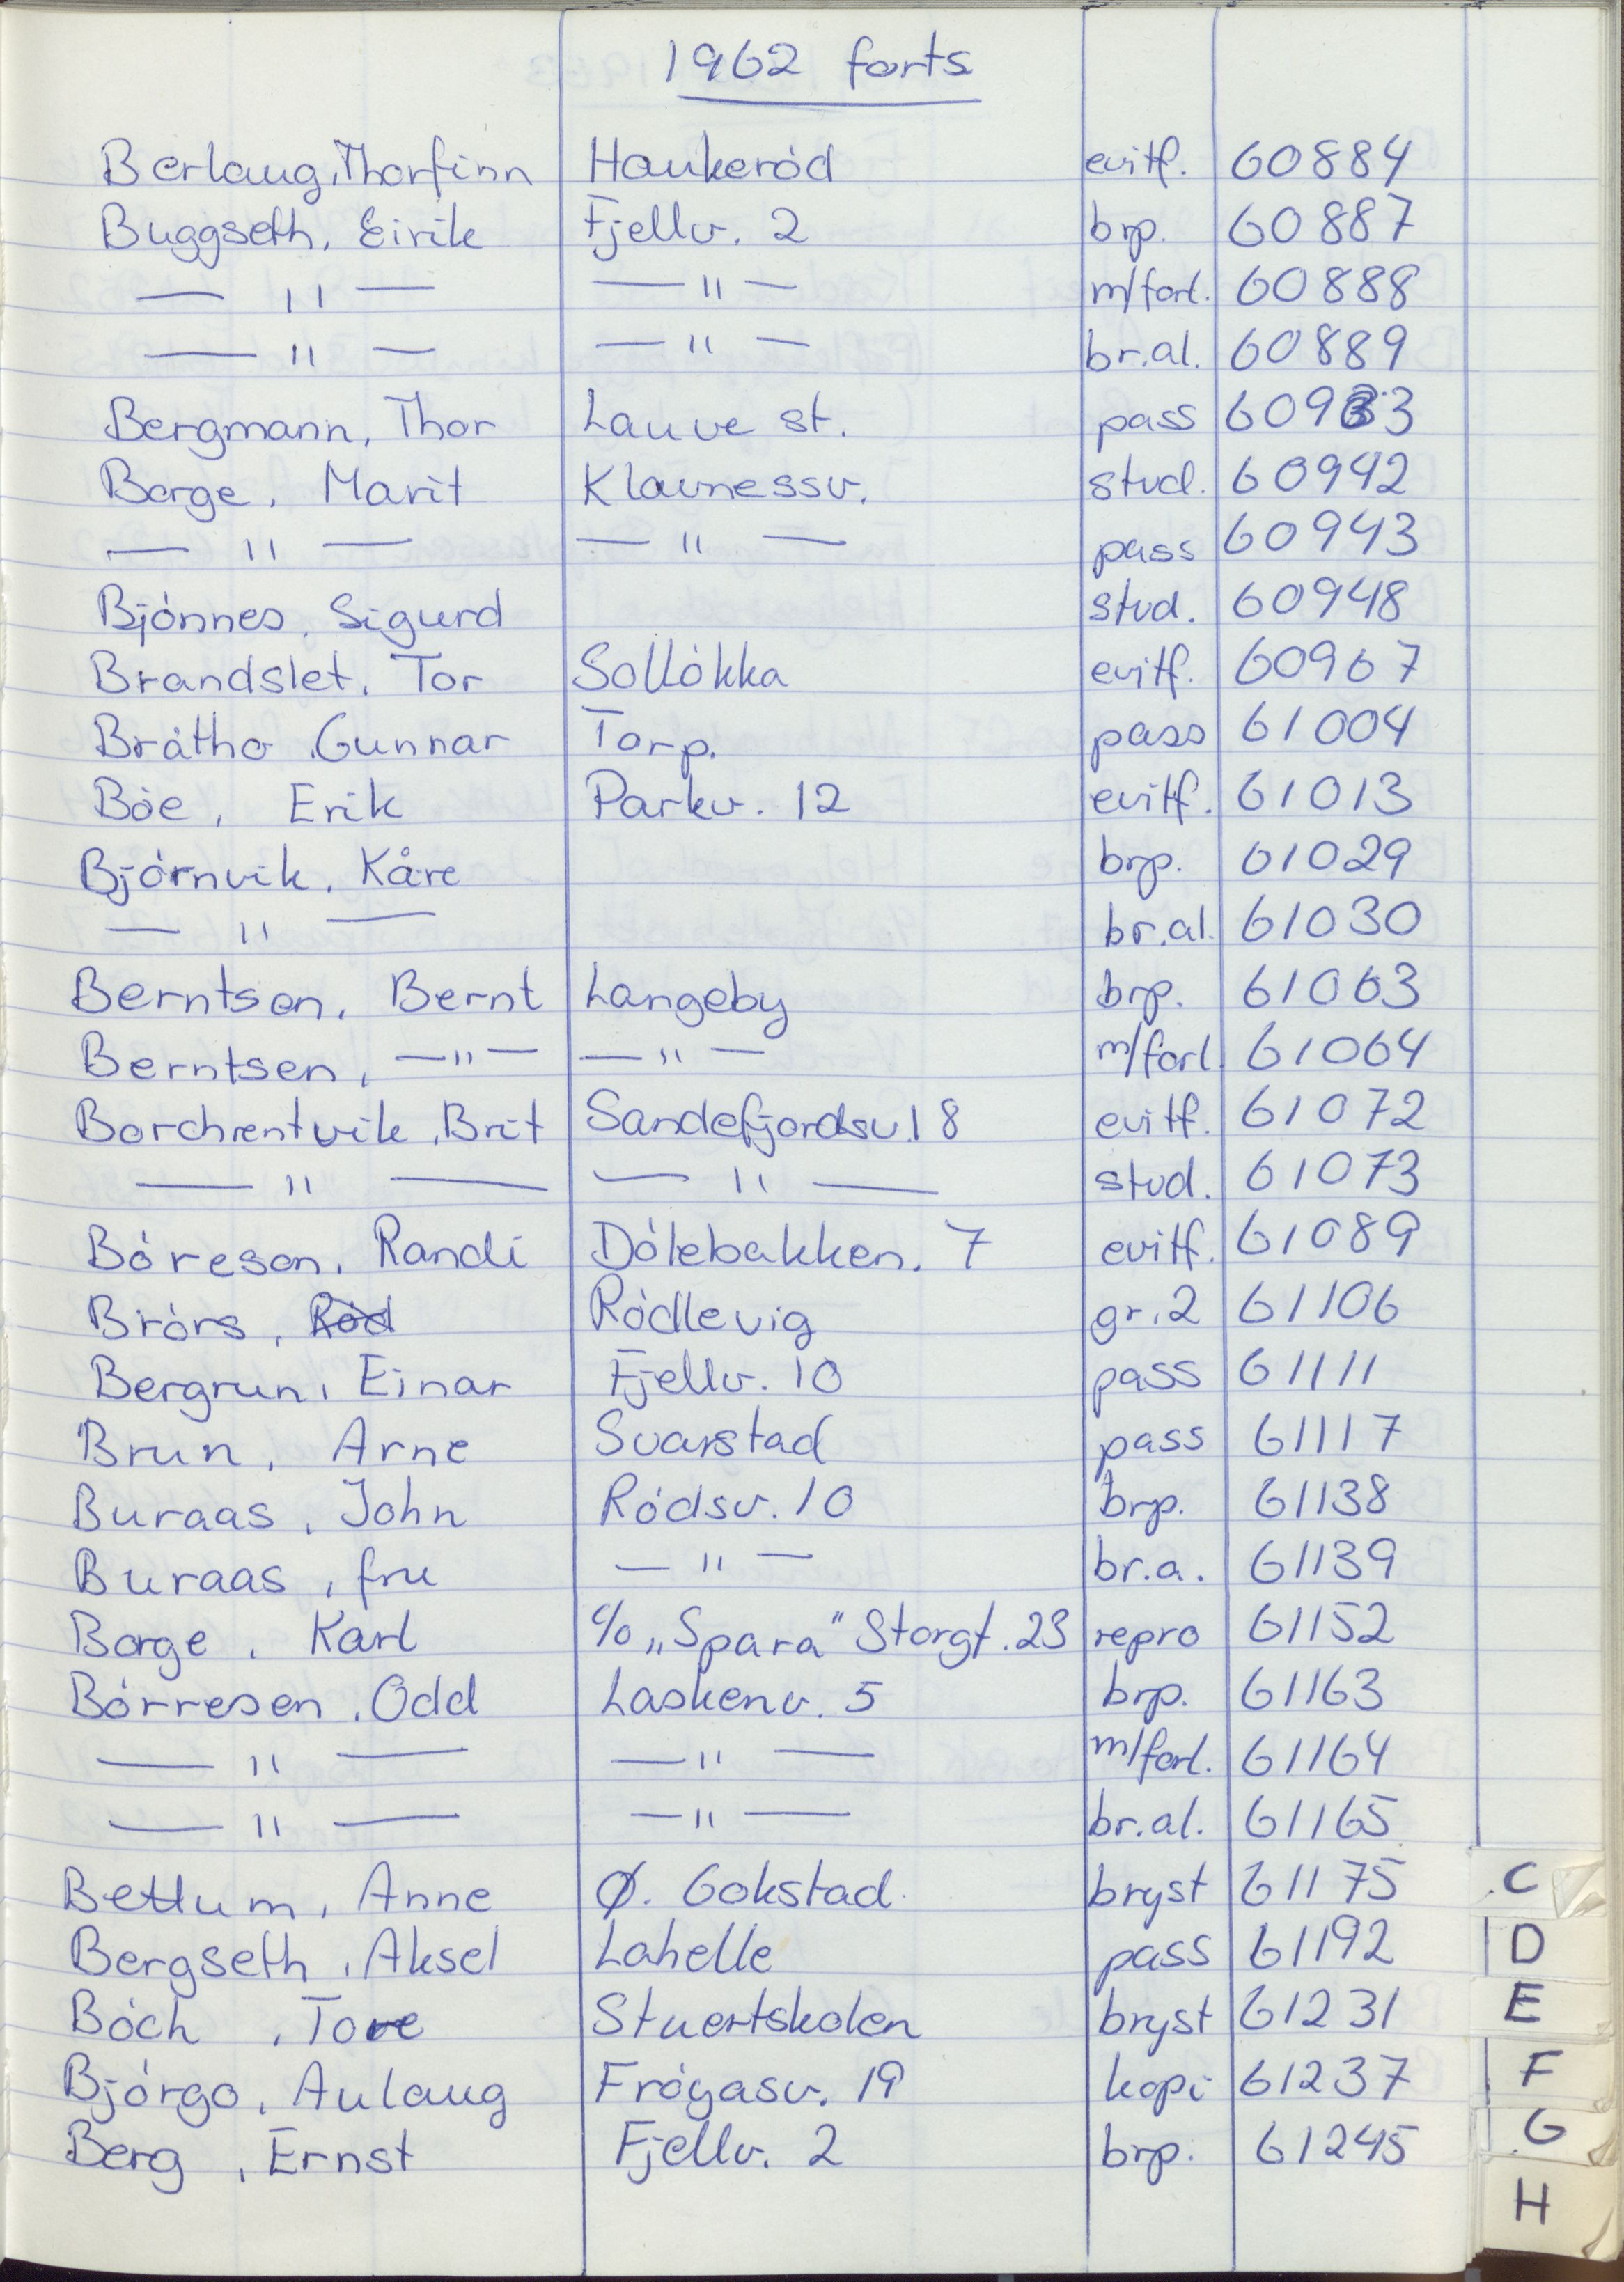 1962 forts
Berlaug, Thorfinn Haukeród evitf. 60884
Buggseth, Eirik Fjellv. 2 brp. 60887
— " — — " — m/forl. 60888
— " — — " — br.al. 60889
Bergmann, Thor Lauve st. pass 60933
Borge, Marit Klavnessv. stud. 60942
— " — — " — pass 60943
Bjónnes, Sigurd stud. 60948
Brandslet, Tor Sollókka evitf. 60967
Bråtho, Gunnar Torp. pass 61004
Bóe, Erik Parkv. 12 evitf. 61013
Bjórnvik, Kåre brp. 61029
— " — br.al. 61030
Berntsen, Bernt Langeby brp. 61063
Berntsen, — " — — " — m/forl 61064
Borchrentvik, Brit Sandefjordsv. 18 evitf. 61072
— " — — " — stud. 61073
Bóreson, Randi Dólebakken. 7 evitf. 61089
Brórs, Ród Ródlevig gr.2 61106
Bergrun, Einar Fjellv. 10 pass 61111
Brun, Arne Svarstad pass 61117
Buraas, John Ródsv. 10 brp. 61138
Buraas, fru — " — br.a. 61139
Borge, Karl c/o „Spara" Storgt. 23 repro 61152
Bórresen, Odd Laskenv. 5 brp. 61163
— " — — " — m/forl. 61164
— " — — " — br.al. 61165
Bettum, Anne Ø. Gokstad. bryst 61175
C
Bergseth, Aksel Lahelle pass 61192
D
Bóch, Tove Stuertskolen bryst 61231
E
Bjórgo, Aulaug Fróyasv. 19 kopi 61237
F
Berg, Ernst Fjellv. 2 brp. 61245
G
H